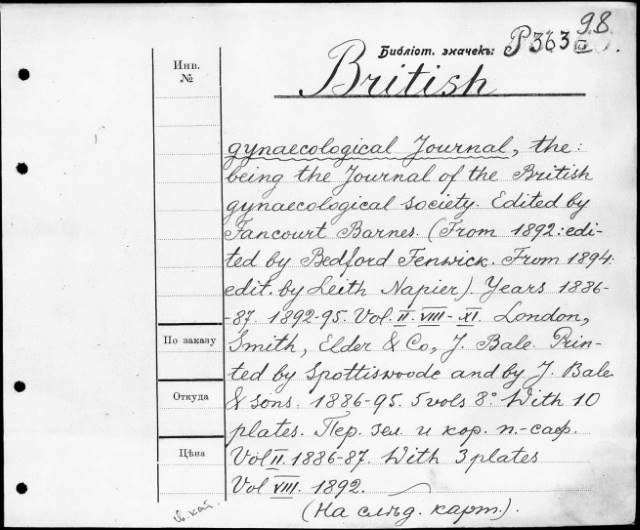 98
Библіот. значекъ: P363 II
British
Инв.
№
gynaecological Journal, the:
being the Journal of the British
gynaecological society. Edited by
Fancourt Barnes. (From 1892: edi-
ted by Bedford Fenwick. From 1894:
edit. by Leith Napier). Years 1886-
-87. 1892-95. Vol. II. VIII-XI. London,
По заказу
Smith, Elder & Co, J. Bale. Prin-
ted by Spottiswoode and by J. Bale
Откуда
& sons. 1886-95. 5 vols 8.° With 10
plates. Пер. зел. и кор. п.-саф.
Цѣна
Vol II. 1886-87. With 3 plates
Vol VIII. 1892.
(На слѣд. карт.).